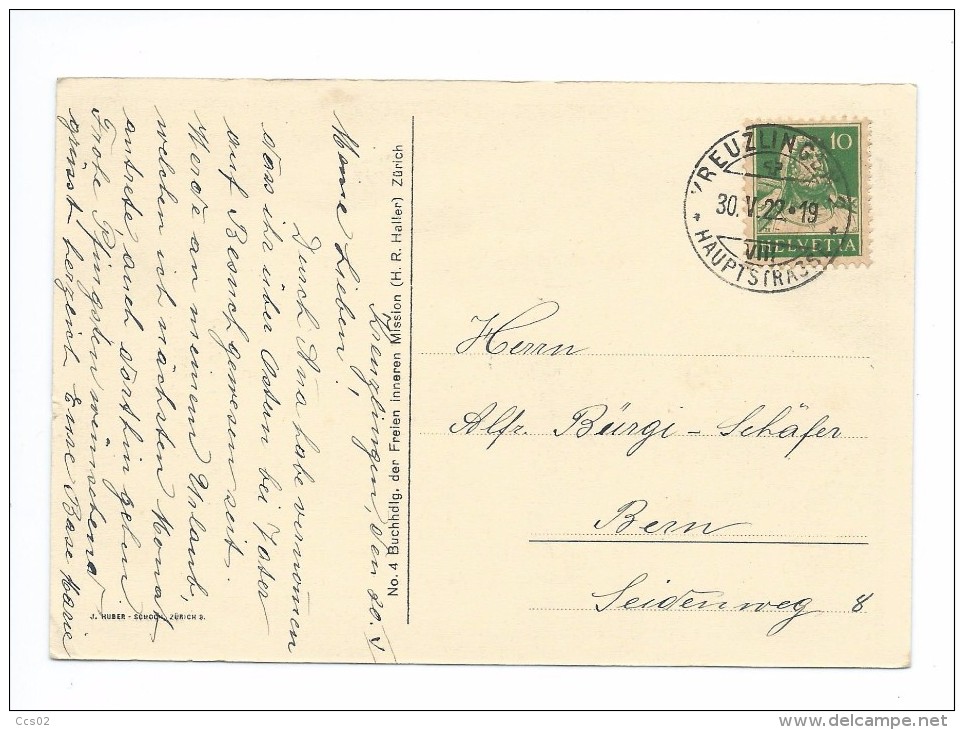 Kreuzlingen, den 20. V
Meine Lieben!
Durch Ana habe vernommen
dass ihr über Ostern bei
auf Besuch gewesen seit.
Werde an meinem Urlaub,
welchen ich nächsten Monat
antrete, auch dorthin gehen.
Frohe Pfingsten wünschend
grüsst herzlich Eure Base Marie
J. HUBER - SCHOCH, ZÜRICH 3.
No. 4 Buchhdlg. der Freien inneren Mission (H. R. Haller) Zürich
KREUZLINGEN
30.V.22.-19
VIII
HAUPTSTRASSE
10
HELVETIA
Herrn
Alfr. Bürgi - Schäfer
Bern
Seidenweg 8
Ccs02
www.delcampe.net